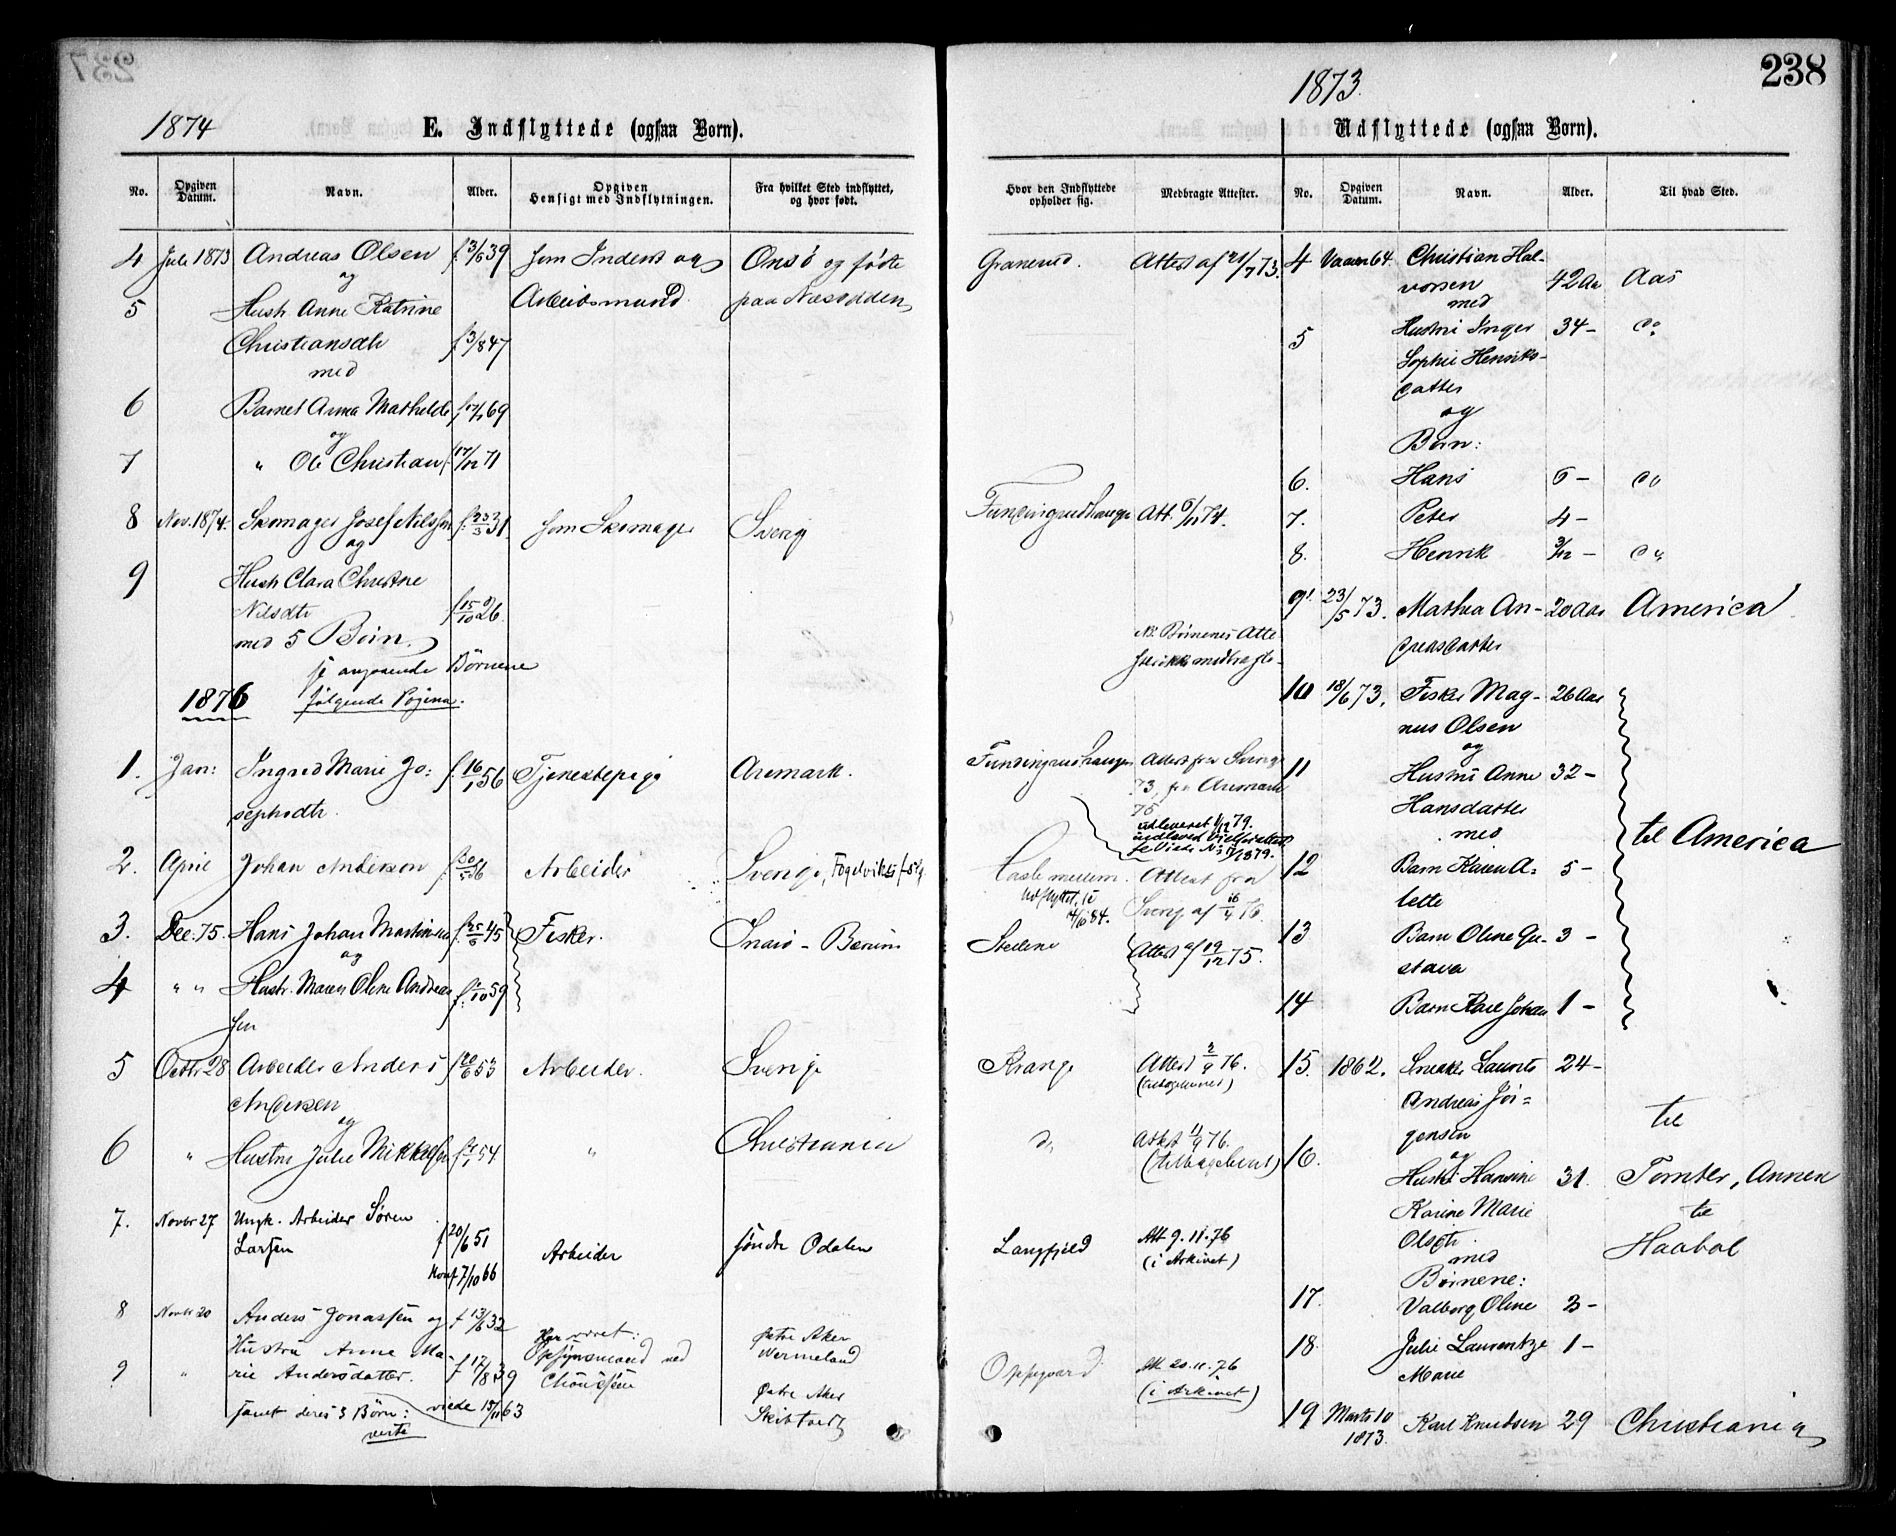 238
1874
E. Indflyttede (ogsaa Børn).
No. Opgiven Datum. Navn. Alder. Opgiven Hensigt med Indflytningen. Fra hvilket Sted indflyttet, og hvor født.
4 Juli 1873 Andreas Olsen f. 3/6 39 som Inderst og Onsø og fødte
og
5 Hustr Anne Katrine Arbeidsmand paa Næsodden
Christiansdtr f. 3/8 47
med
6 Barnet Anna Mathilde 69
og
7 " Ole Christian 17/12 71
8 Nov. 1874. Skomager Josef Nilssen 31 som Skomager Sverig
og
9 Hustr Clara Christine
Nilsdtr f 15/10 26
med 5 Børn.
angaaende Børnene
1876 følgende Pagina.
1. Jan: Ingred Marie Jo= f. 16/1 56 Tjenestepige Aremark.
sephsdtr.
2. April Johan Anderson Arbeider Sverige,
3. Dec. 75. Hans Johan Martinsen f. 25/6 45 Fisker. Snarø - Bærum
og
4 " " Hustr. Maren Oline Andreas f. 1/10 59
sen
5 Octbr 28 Arbeider Anders f 20/6 53 Arbeider. Sverige
Andersen
og
6 " Hustru Julie Mikkelsen 54 " Christiania
7. Novbr 27 Ungk. Arbeider Søren
Larsen f 20/6 51 Arbeider søndre Odalen
Konf 7/10 66
8 Novbr 20 Anders Jonassen og f 13/6 32 Har været: Østre Aker
Hustru Anne Ma- Opsynsmand ved Wermeland
9 " rie Andersdatter. f 17/8 39
samt deres 3 Børn: viede 15/11 63 Østre Aker
verte
1873.
Udflyttede (ogsaa Børn).
Hvor den Indflyttede opholder sig. Medbragte Attester. No. Opgiven Datum. Navn. Alder. Til hvad Sted.
Granerud. Attest af 21/7 73. 4 Vaaren 64. Christian Hal-
vorsen 42 Aar Aas
med
5 Hustru Inger 34 - do
Sophie Henriks-
datter
og
Børn:
6. Hans 6 - do
Fundingrudhaugen Att. 6/11 74. 7. Peter 4 -
8. Henrik 3/12 - do
9. 23/5 73. Mathea An- 20 Aar America.
dreasdatter
NB. Børnenes Atte
ster ikke medbragte.
10 18/6 73. Fisker Mag- 26 Aar
nus Olsen
og
Fundingrudhaugen Attest fra Sverig 11 Hustru Anne 32 -
73, fra Aremark Hansdatter
75 med
udleveret 1/12 79.
til America
Attest fra 12 Barn Karen A= 5 -
Udflyttet, se Sverig af 16/4 76. lette
14/6 84.
Steilene Attest af 19/12 75. 13 Barn Oline Gu- 3 -
stava
14 Barn Karl Johan 1 -
Krange Attest 2/9 76. 15. 1862. Snedker Laurits 24 -
Andreas Jør=
gensen til
og
Attest 11/9 76. 16. Hustr. Hansine 31. Tomter, Annex
(tilbagelevert) Karine Marie til
Olsdtr. Haabøl
Langfjeld Att 9.11.76 med
(i Arkivet) Børnene:
17. Valborg Oline 3 -
18. Julie Laurentze 1 -
Marie
Oppegaard Att 20.11.76
(i Arkivet)
19 Marts 10 Karl Knudsen 29 Christiania
1873.